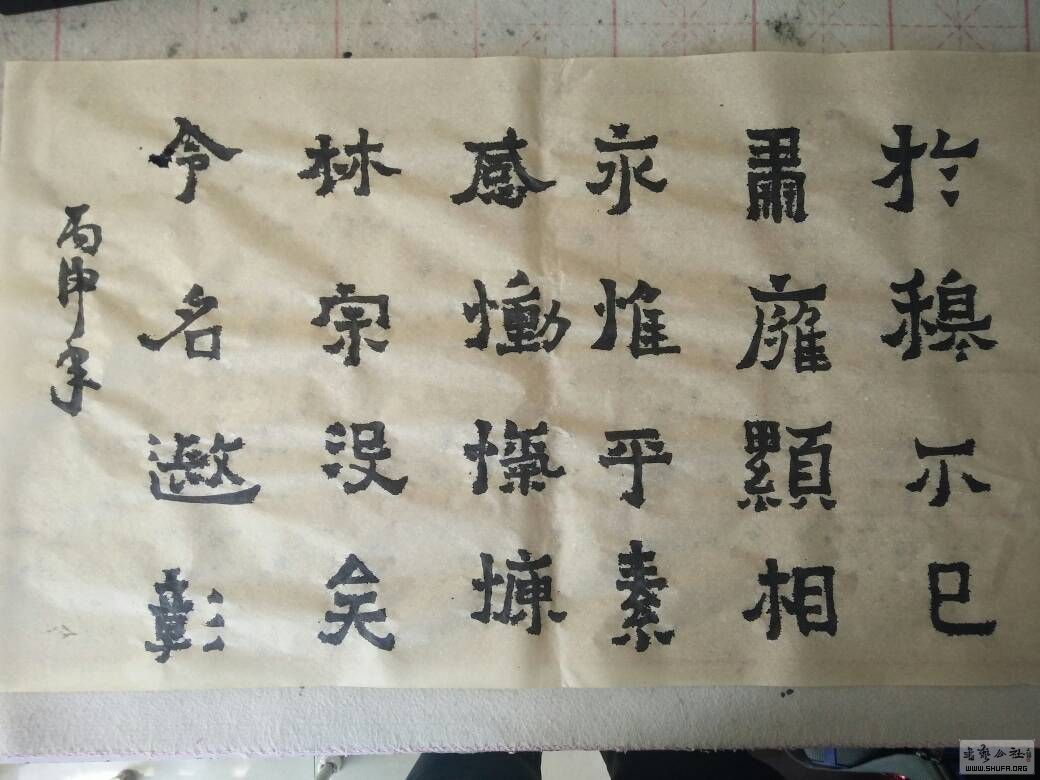 於穆不已
肅廱顯相
永惟平素
感慟愾慷
林宗没矣
令名邀彰
丙申年
书艺公社
WWW.SHUFA.ORG